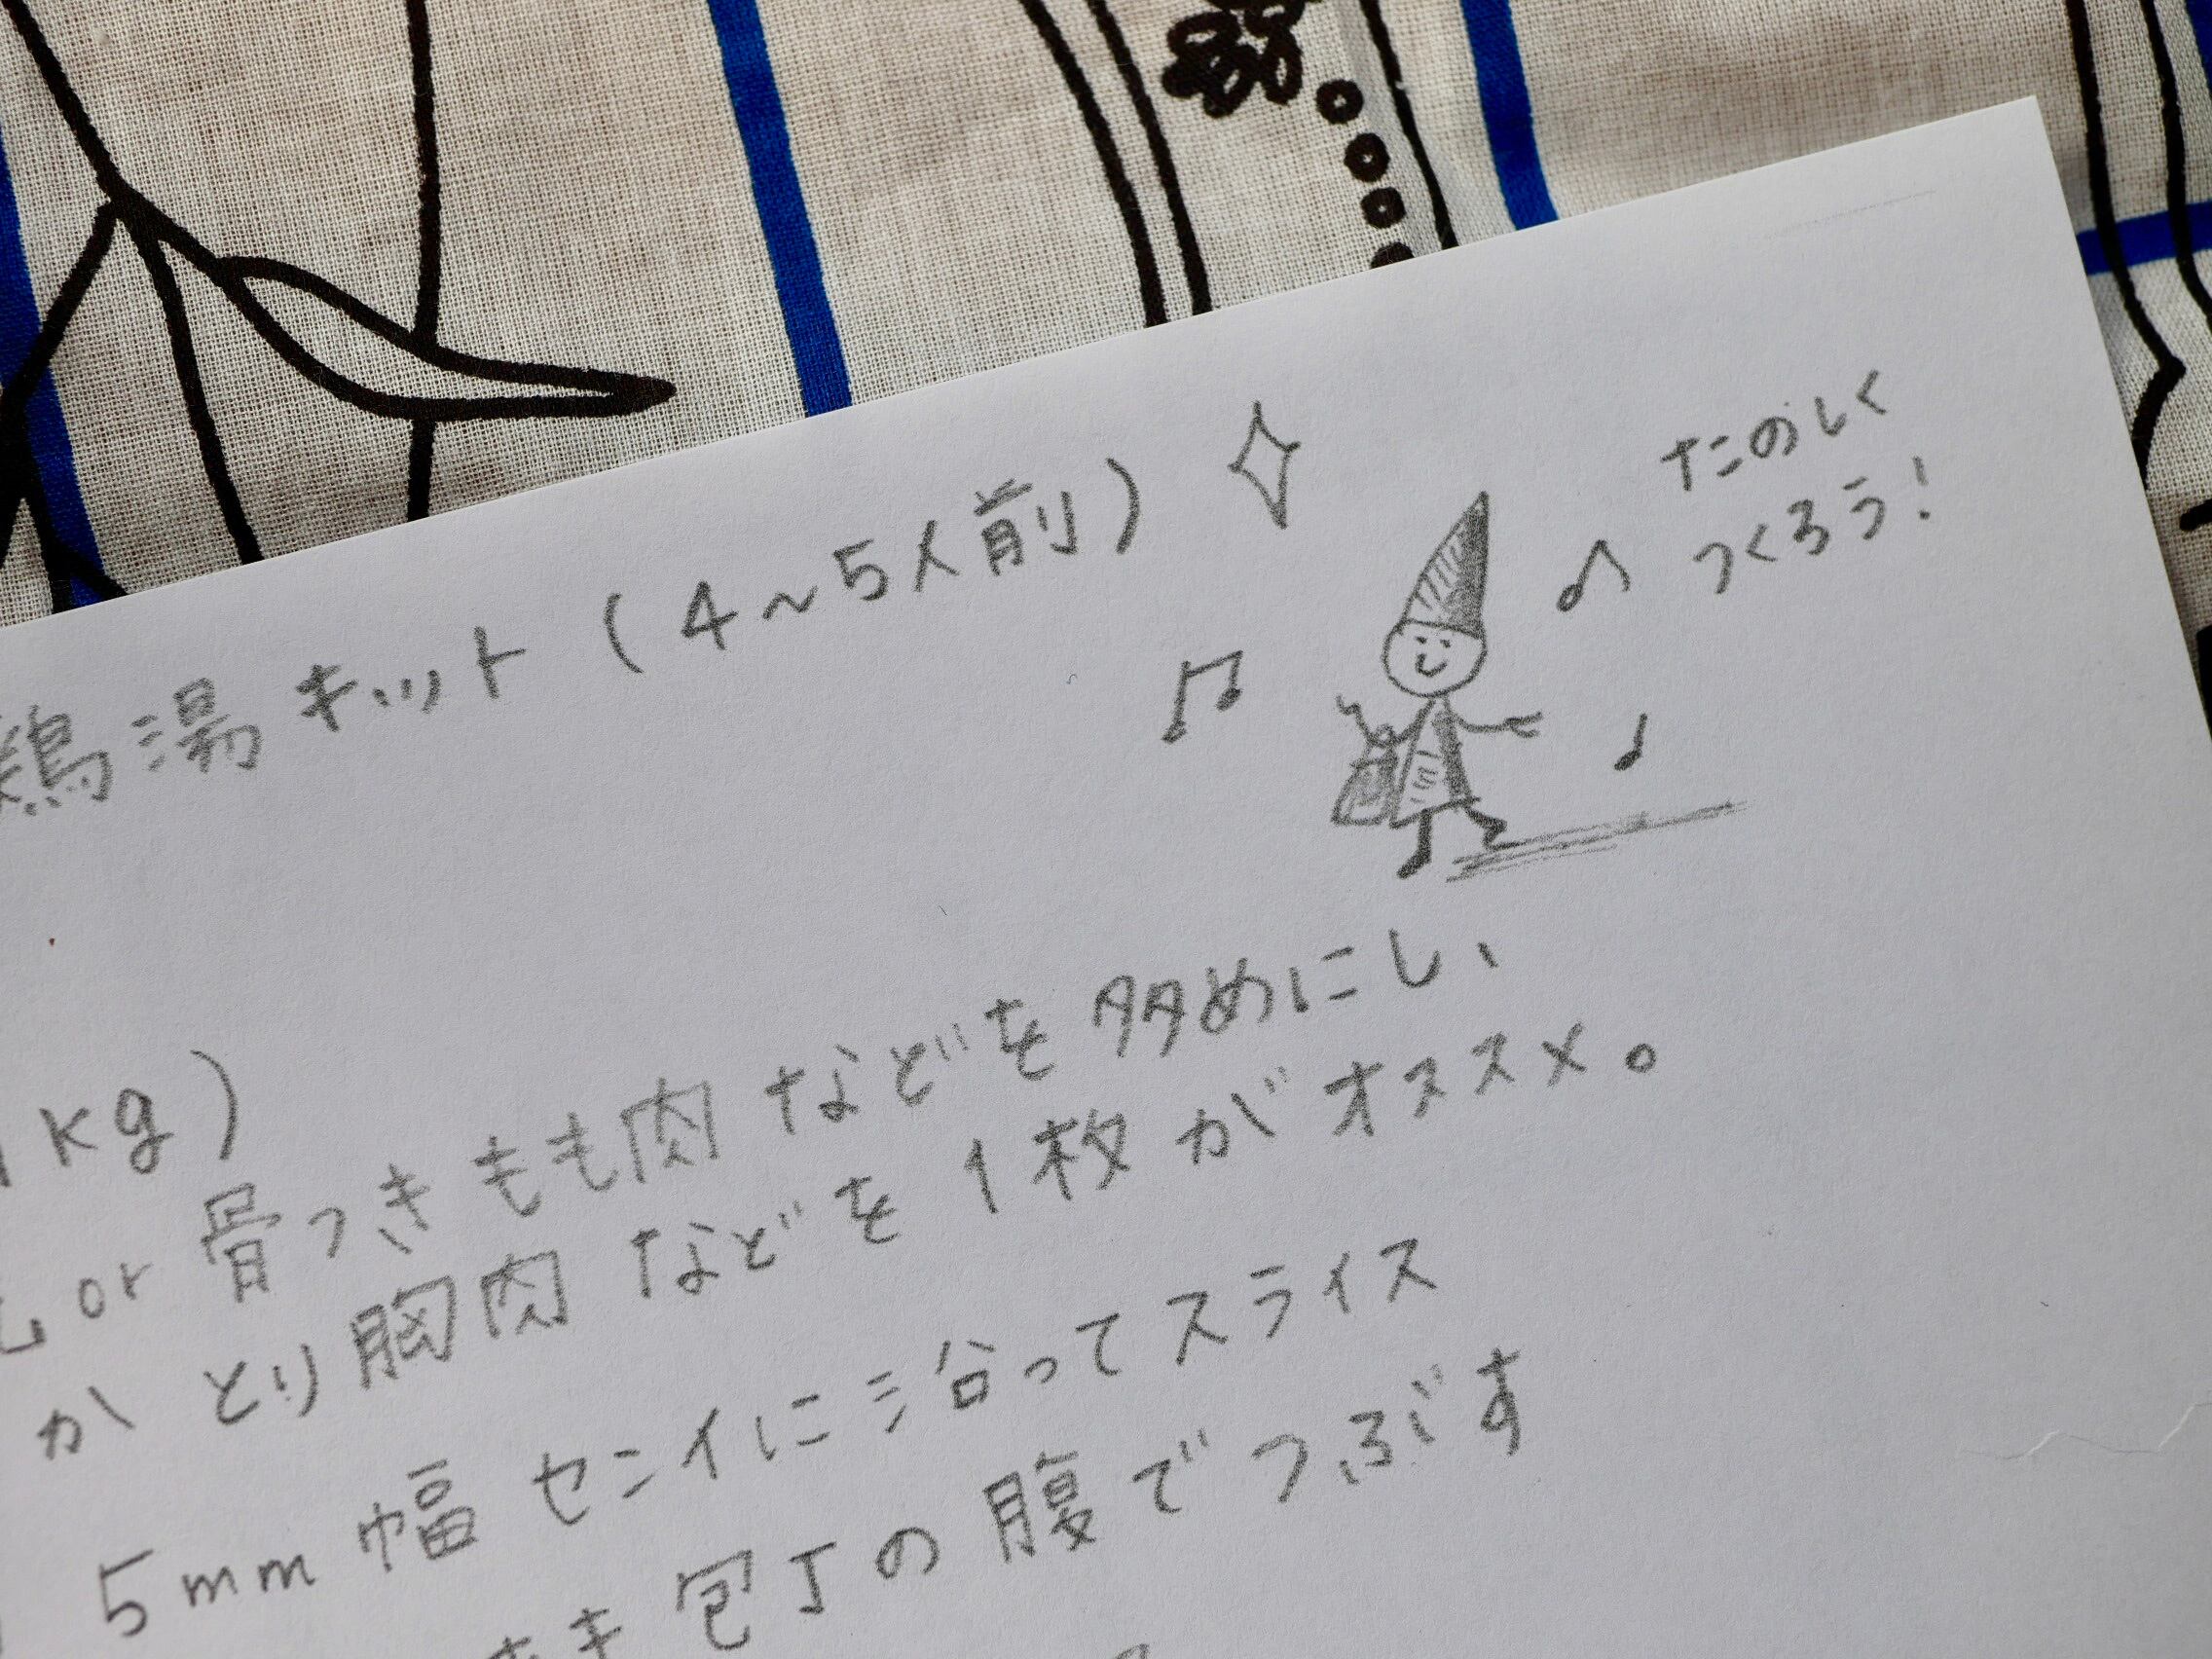 鶏湯キット(4〜5人前)
たのしく
つくろう!
kg)
or 骨つきもも肉などを多めにし、
か とり胸肉などを1枚がオススメ。
5mm幅 センイに沿ってスライス
包丁の腹でつぶす